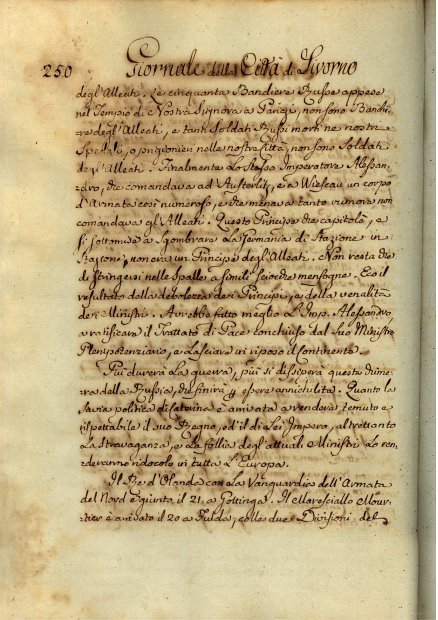 250 Giornale della Città di Livorno
degl'Alleati. Le cinquanta Bandiere Russe appese
nel Tempio di Nostra Signora a Parigi, non sono Bandie
re degl'Alleati, e tanti Soldati Russi morti ne nostri
Spedali, o prigionieri nelle nostre Città, non sono Soldati
degl'Alleati. Finalmente lo stesso Imperatore Alessan-
dro, che comandava ad Austerliz, e a Wiscau un corpo
d'Armata così numeroso, e che menava tanto rumore non
comandava gl'Alleati. Questo Principe che capitolò, e
si sottomise a sgombrare la Germania di Stazione in
Stazione, non era un Principe degl'Alleati. Non resta che
di stringersi nelle Spalle a simili sciocche mensogne. Ecco il
resultato della debolezza dei Principi, e della venalità
dei Ministri. Avrebbe fatto meglio l'Imp. Alessandro
a ratificare il Trattato di Pace conchiuso dal suo Ministro
Plenipotenziario, e lasciare in riposo il Continente.
Più durerà la guerra, più si dissiperà questa chime-
ra della Russia, che finirà per essere annichilita. Quanto la
savia politica di Caterina è arrivata a rendere temuto e
rispettabile il suo Regno, ed il di lei Impero, altrettanto
la stravaganza, e la follìa degl'attuali Ministri lo ren-
deranno ridicolo in tutta l'Europa.
Il Re d'Olanda con la Vanguardia dell'Armata
del Nord è giunto il 21. a Gottinga. Il Maresciallo Mour-
tier è arrivato il 20 a Fulda, colle due Divisioni del